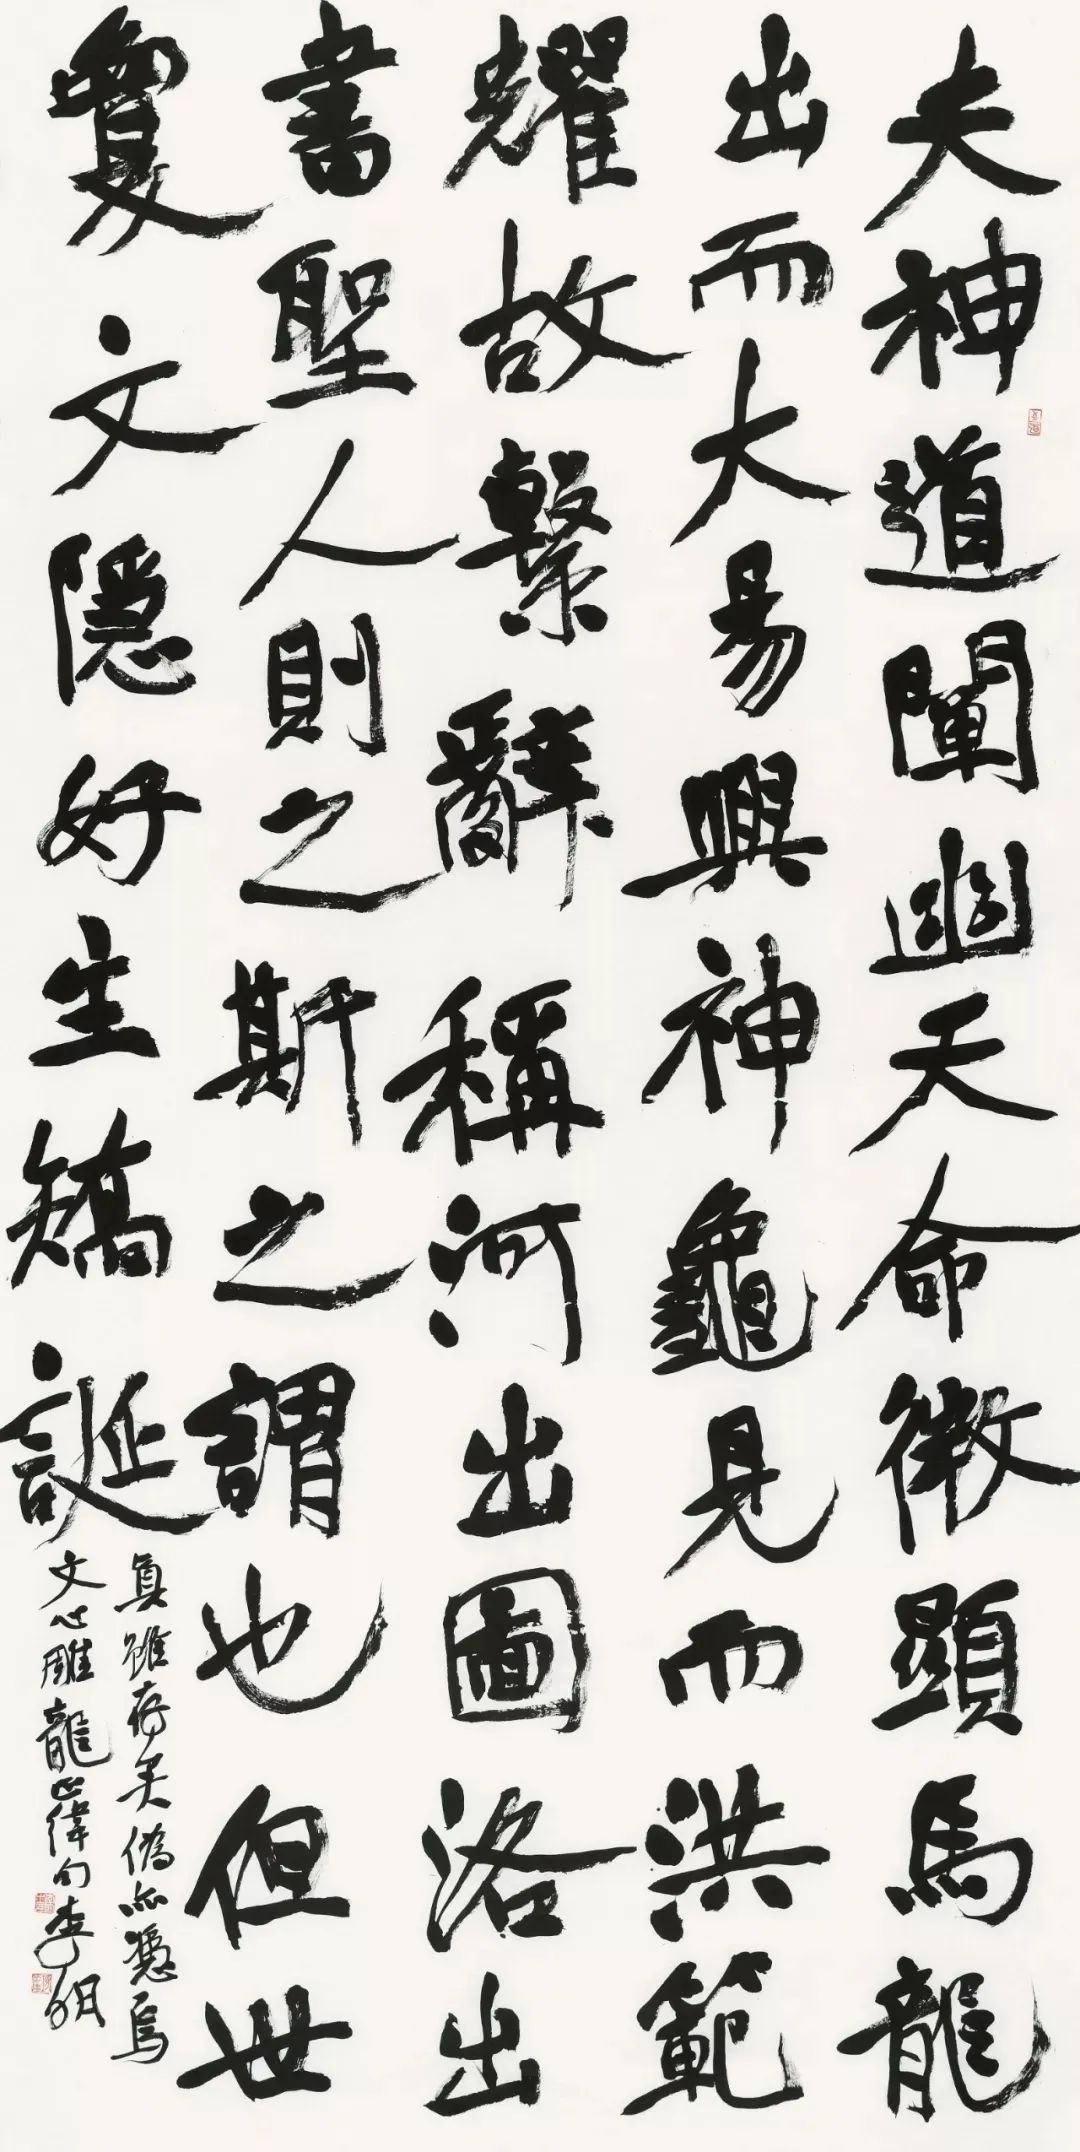 夫神道闡幽天命微顯馬龍
出而大易興神龜見而洪範
耀故繫辭稱河出圖洛出
書聖人則之斯之謂也但世
夐文隱好生矯誕
真雖存矣偽亦憑焉
文心雕龍正緯句李